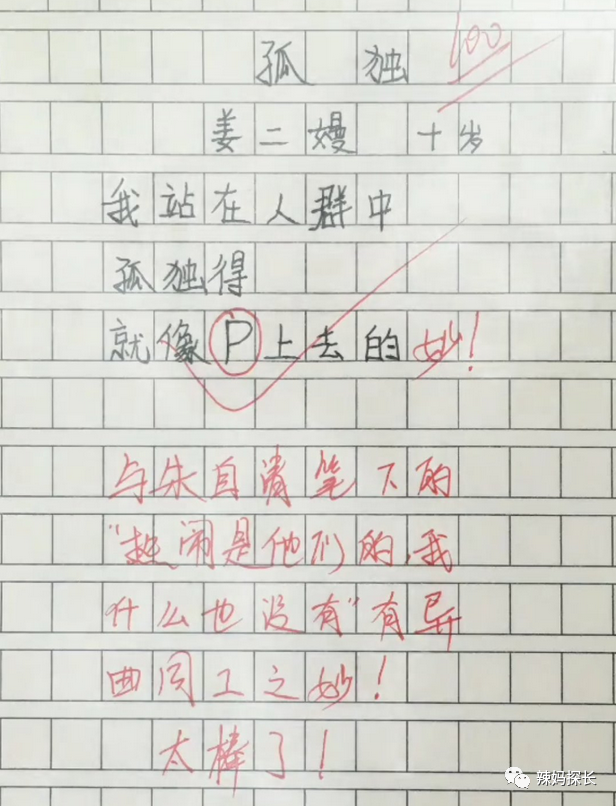 孤独 100
姜二嫚 十岁
我站在人群中
孤独得
就像P上去的 妙!
与朱自清笔下的
"热闹是他们的,我
什么也没有"有异
曲同工之妙!
太棒了!
辣妈探长